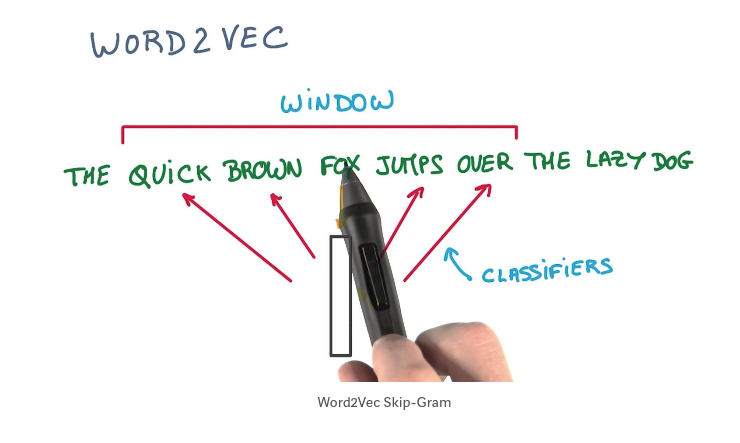 WORD2VEC
WINDOW
THE QUICK BROWN FOX JUMPS OVER THE LAZY DOG
CLASSIFIERS
Word2Vec Skip-Gram